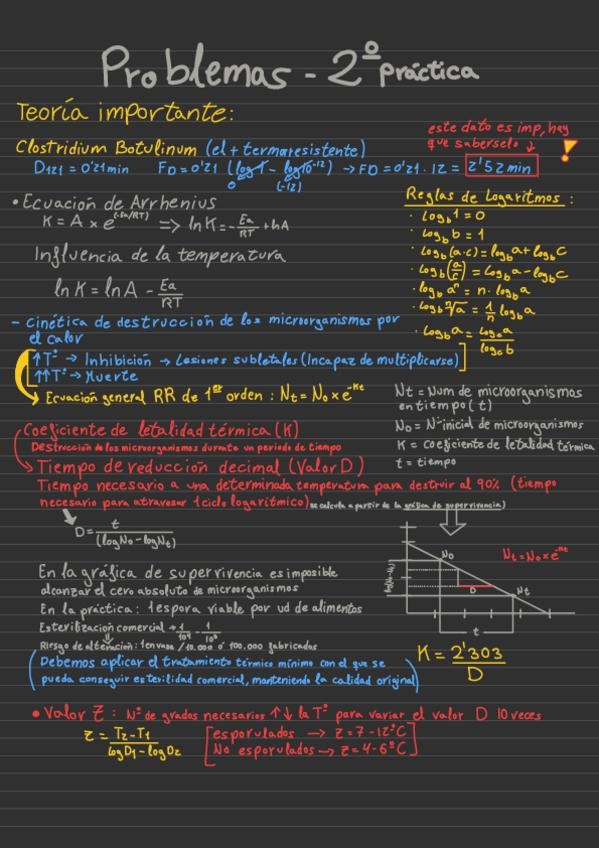 Problemas - 2º práctica
Teoría importante:
este dato es imp, hay
que saberselo
Clostridium Botulinum (el + termoresistente)
D121 = 0'21min FD = 0'21 (log1 - log10^-12) → FD = 0'21 · 12 = 2'52 min
0 (-12)
• Ecuación de Arrhenius
K = A x e^(-Ea/RT) => lnK = - Ea/RT + lnA
Influencia de la temperatura
ln K = ln A - Ea/RT
Reglas de Logaritmos:
· Log_b 1 = 0
· Log_b b = 1
· Log_b (a·c) = log_b a + log_b c
· Log_b (a/c) = Log_b a - log_b c
· log_b a^n = n · log_b a
· Log_b ⁿ√a = 1/n log_b a
· Log_b a = Log_o a / Log_o b
- Cinética de destrucción de los microorganismos por
el calor
↑Tª → Inhibición → Lesiones subletales (Incapaz de multiplicarse)
↑↑Tª → Muerte
→ Ecuación general RR de 1er orden : Nt = No x e^-Kt
Nt = Num de microorganismos
en tiempo (t)
No = Nº inicial de microorganismos
K = coeficiente de letalidad térmica
t = tiempo
Coeficiente de letalidad térmica (K)
Destrucción de los microorganismos durante un periodo de tiempo
→ Tiempo de reducción decimal (Valor D)
Tiempo necesario a una determinada temperatura para destruir al 90% (tiempo
necesario para atravesar 1 ciclo logarítmico) se calcula a partir de la gráfica de supervivencia)
D = t / (logNo - logNt)
No
Nt = No x e^-Kt
D
Nt
t
En la gráfica de supervivencia es imposible
alcanzar el cero absoluto de microorganismos
En la práctica: 1 espora viable por ud de alimentos
Esterilización comercial → 1/10^4 - 1/10^5
Riesgo de alteración: 1 envase /10.000 ó 100.000 fabricados
(Debemos aplicar el tratamiento térmico mínimo con el que se
pueda conseguir esterilidad comercial, manteniendo la calidad original)
K = 2'303 / D
• Valor Z : Nº de grados necesarios ↑↓ la Tª para variar el valor D 10 veces
Z = T2 - T1 / logD1 - logD2
[esporulados → Z = 7 - 12ºC
No esporulados → Z = 4 - 6ºC]